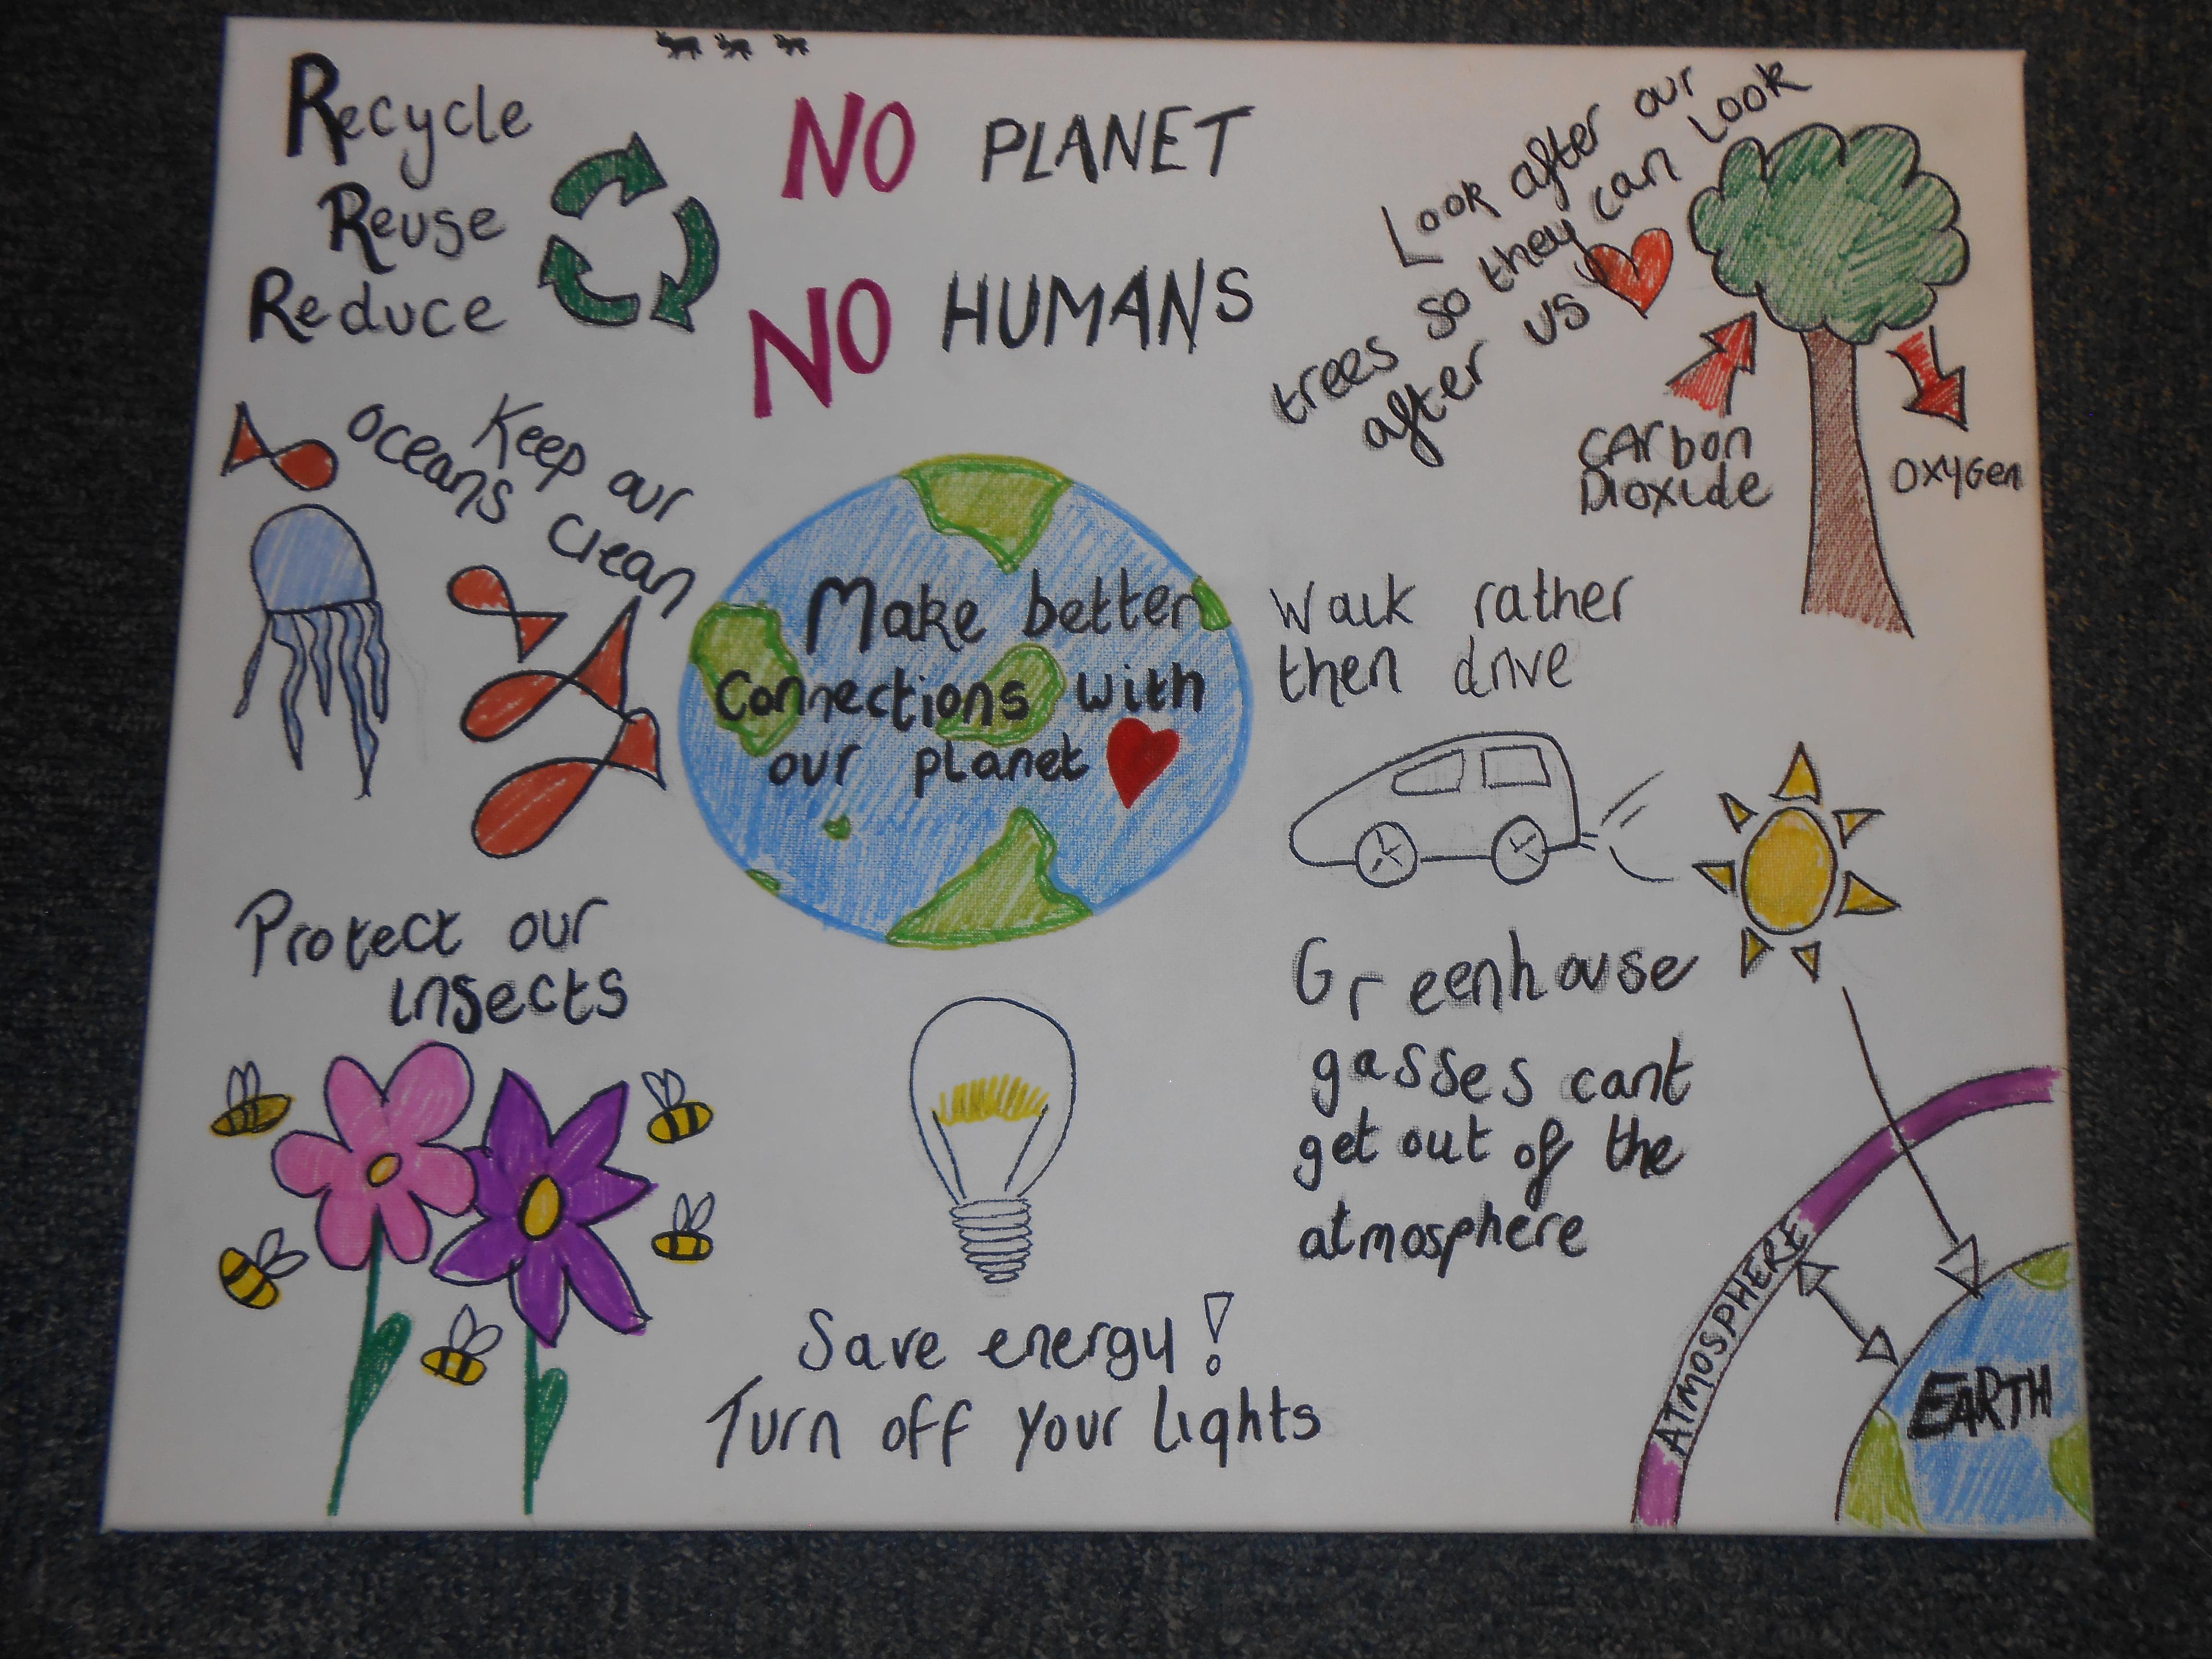 Recycle
Reuse
Reduce
NO PLANET
NO HUMANS
Look after our
trees so they can look
after us
CArbon
Dioxide
OxyGen
Keep our
oceans clean
Make better
Connections with
our planet
Walk rather
then drive
Protect our
insects
Greenhouse
gasses cant
get out of the
atmosphere
Save energy!
Turn off your lights
ATMOSPHERE
EARTH